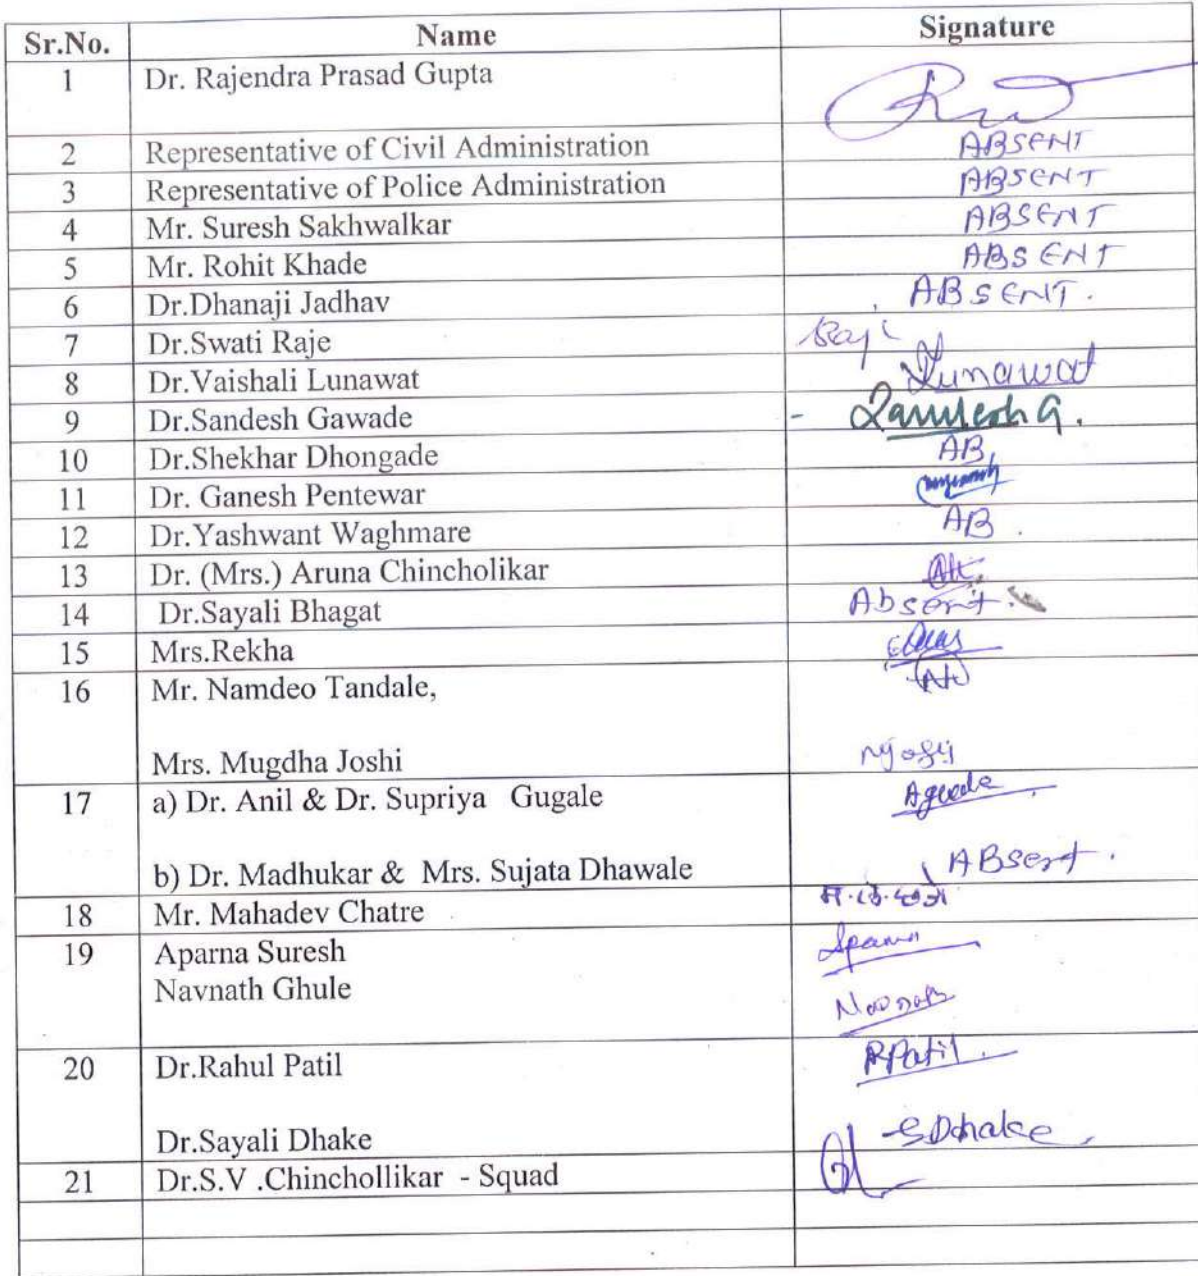 Sr.No. Name Signature
1 Dr. Rajendra Prasad Gupta
2 Representative of Civil Administration ABSENT
3 Representative of Police Administration ABSENT
4 Mr. Suresh Sakhwalkar ABSENT
5 Mr. Rohit Khade ABSENT
6 Dr.Dhanaji Jadhav ABSENT.
7 Dr.Swati Raje
8 Dr.Vaishali Lunawat Lunawat
9 Dr.Sandesh Gawade Sandesh G.
10 Dr.Shekhar Dhongade AB
11 Dr. Ganesh Pentewar
12 Dr.Yashwant Waghmare AB.
13 Dr. (Mrs.) Aruna Chincholikar
14 Dr.Sayali Bhagat Absent.
15 Mrs.Rekha
16 Mr. Namdeo Tandale,
Mrs. Mugdha Joshi
17 a) Dr. Anil & Dr. Supriya Gugale
b) Dr. Madhukar & Mrs. Sujata Dhawale ABsent.
18 Mr. Mahadev Chatre
19 Aparna Suresh
Navnath Ghule
20 Dr.Rahul Patil RPatil.
Dr.Sayali Dhake SDhake
21 Dr.S.V .Chinchollikar - Squad